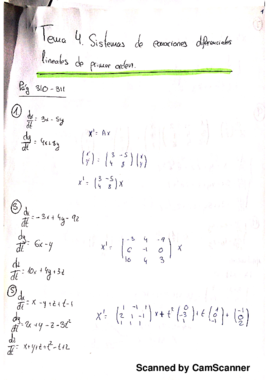 Tema 4. Sistemas de ecuaciones diferenciales
lineales de primer orden.
Pág 310-311
① dx/dt = 3x - 5y
dy/dt = 4x + 8y
x' = Ax
(x y)' = (3 -5 / 4 8)(x y)
x' = (3 -5 / 4 8) X
③ dx/dt = -3x + 4y - 9z
dy/dt = 6x - y
dz/dt = 10x + 4y + 3z
x' = (-3 4 -9 / 6 -1 0 / 10 4 3) X
⑤ dx/dt = x - y + z + t - 1
dy/dt = 2x + y - z - 3t²
dz/dt = x + y + z + t² - t + 2
X' = (1 -1 1 / 2 1 -1 / 1 1 1) X + t² (0 / -3 / 1) + t (1 / 0 / -1) + (-1 / 0 / 2)
Scanned by CamScanner